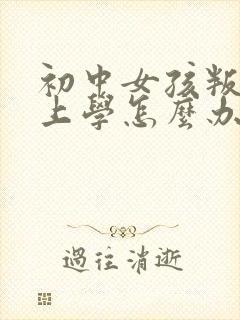 初中女孩叛
上學怎麼办
過往消逝